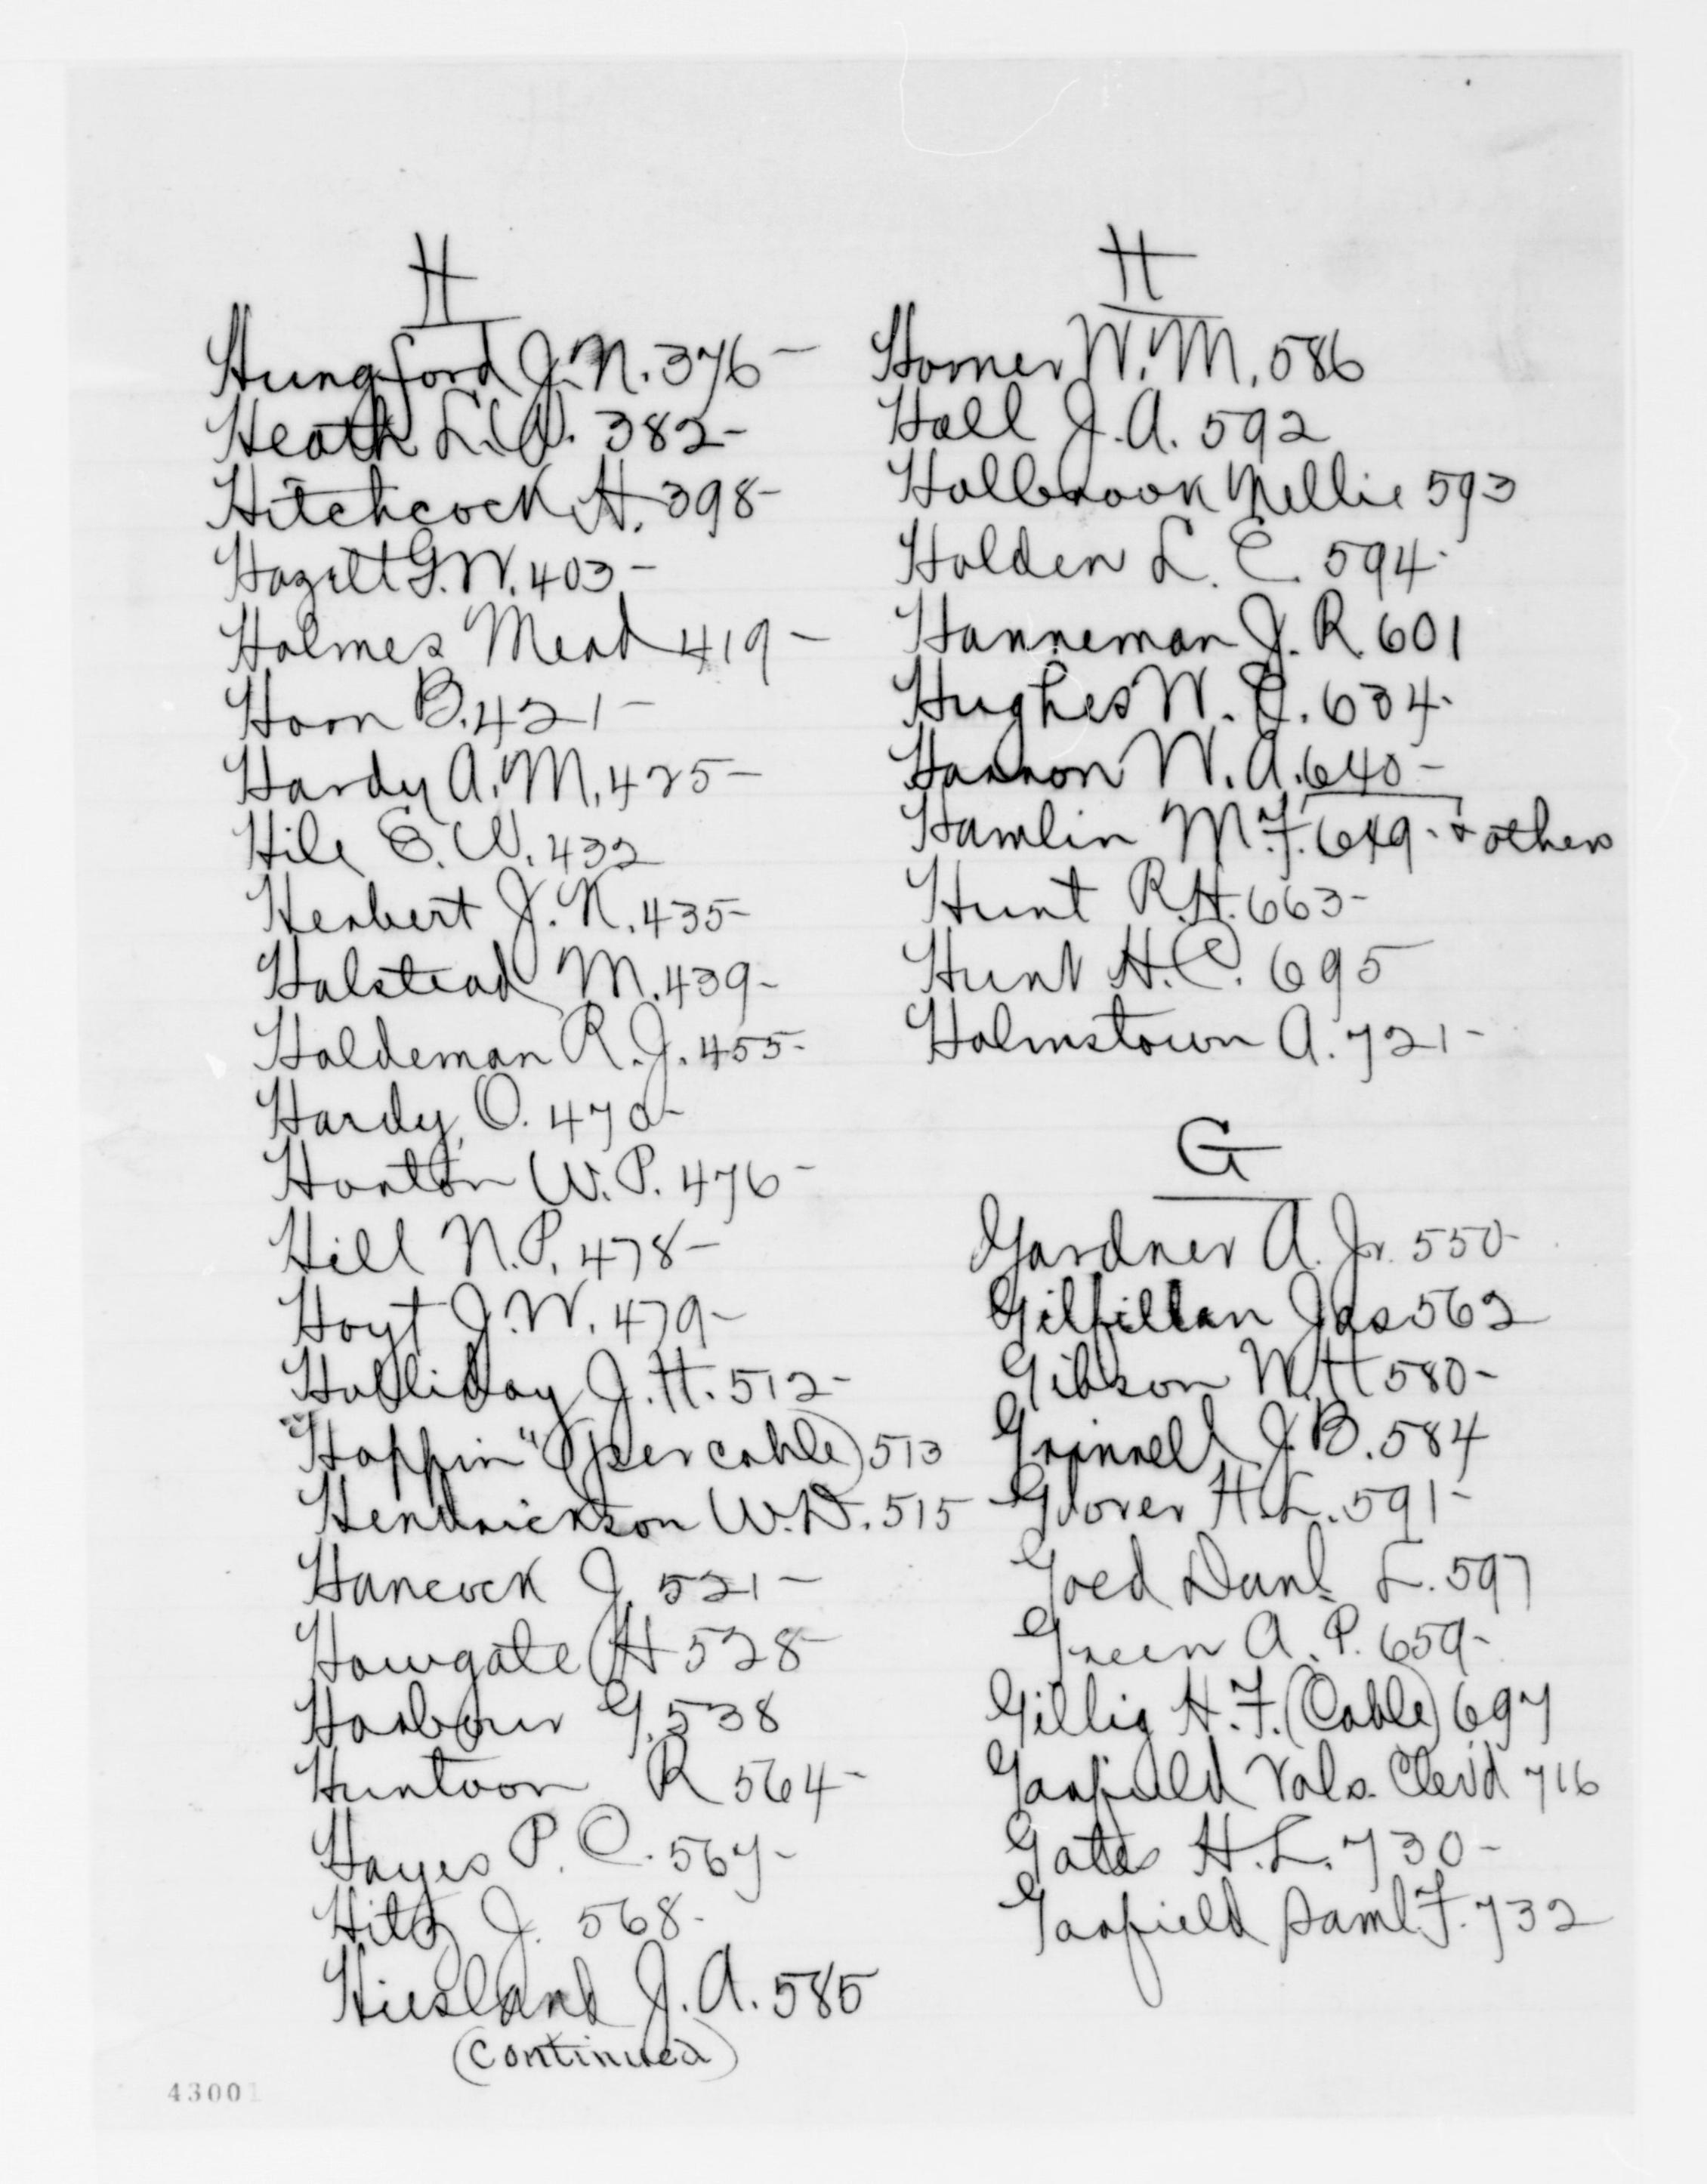 H
Hungford J. N. 376 -
Heath L. W. 382 -
Hitchcock H. 398 -
Hazelt G. W. 403 -
Holmes Mead 419 -
Horn B. 421 -
Hardy A. M. 425 -
Hile E. W. 432
Herbert J. K. 435 -
Halstead M. 439 -
Haldeman R. J. 455 -
Hardy, O. 470 -
Horton W. P. 476 -
Hill N. P. 478 -
Hoyt J. W. 479 -
Holliday J. H. 512 -
"Hoppin" (per cable) 513
Hendrickson W. D. 515
Hancock J. 521 -
Howgate H 528 -
Harbour G. 538
Huntoon R 564 -
Hayes P. C. 567 -
Hitz J. 568 -
Hiesland J. A. 585
(continued)
43001
H
Horner W. M. 586
Hall J. A. 592
Holbrook Nellie 593
Holden L. E. 594 -
Hanneman J. R. 601
Hughes W. E. 634 -
Hannon W. A. 640 -
Hamlin M. F. 649 - & others
Hunt R. H. 663 -
Hunt H. C. 695
Holmstown A. 721 -
G
Gardner A. Jr. 550 -
Gilfillan Jas 562
Gibson W. H 580 -
Grinnell J. B. 584
Glover H. L. 591 -
Goed Danl. L. 597
Green A. P. 659 -
Gillig H. F. (Cable) 697
Garfield Vols. Clevd 716
Gates H. L. 730 -
Garfield Saml. F. 732